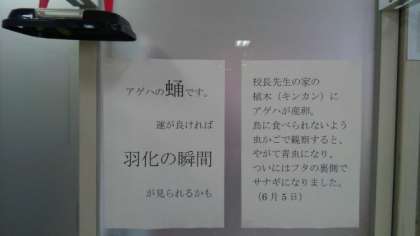 アゲハの蛹です。
運が良ければ
羽化の瞬間
が見られるかも
校長先生の家の
植木（キンカン）に
アゲハが産卵。
鳥に食べられないよう
虫かごで観察すると、
やがて青虫になり、
ついにはフタの裏側で
サナギになりました。
（６月５日）